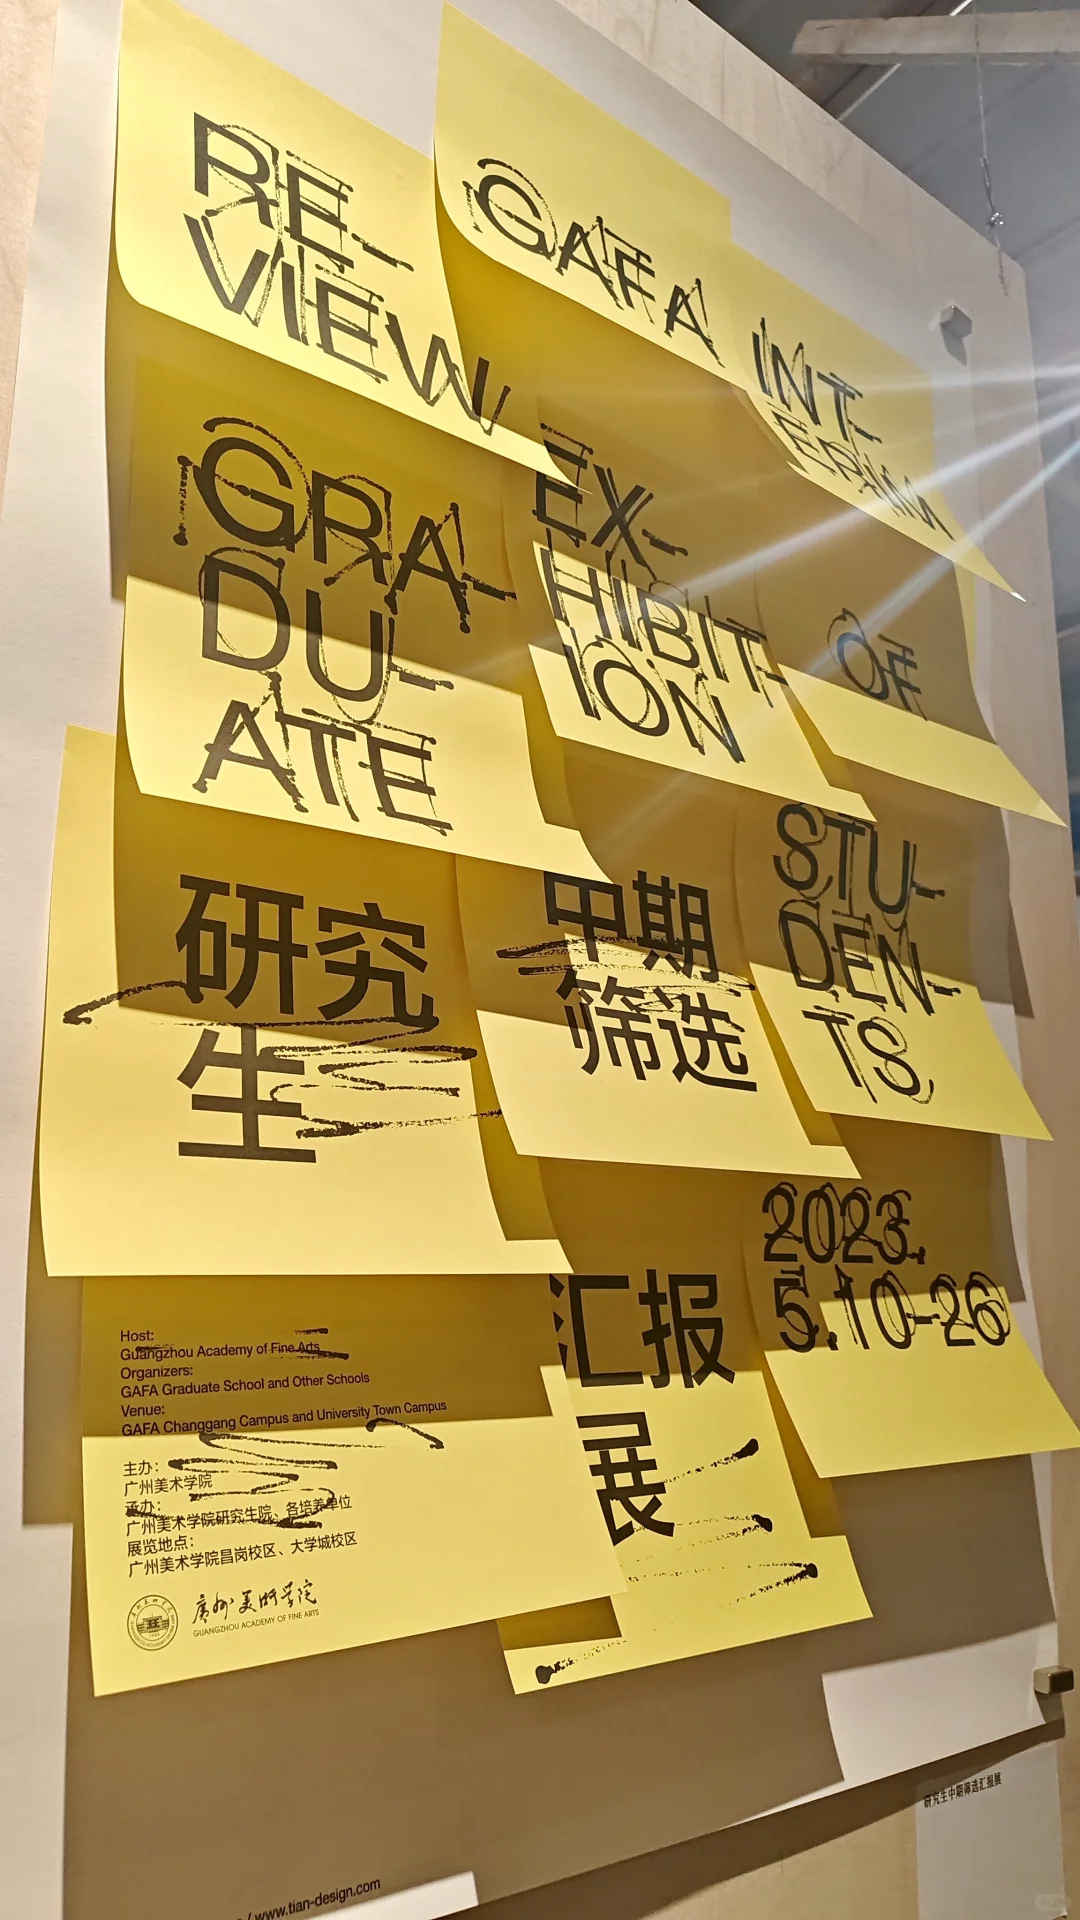 RE-
VIEW
GAFA
INT-
ERIM
GRA-
DU-
ATE
EX-
HIBIT-
ION
OF
研究
生
中期
筛选
STU-
DEN-
TS
汇报
展
2023.
5.10-26
Host:
Guangzhou Academy of Fine Arts
Organizers:
GAFA Graduate School and Other Schools
Venue:
GAFA Changgang Campus and University Town Campus
主办：
广州美术学院
承办：
广州美术学院研究生院、各培养单位
展览地点：
广州美术学院昌岗校区、大学城校区
廣州美術學院
GUANGZHOU ACADEMY OF FINE ARTS
研究生中期筛选汇报展
/ www.tian-design.com